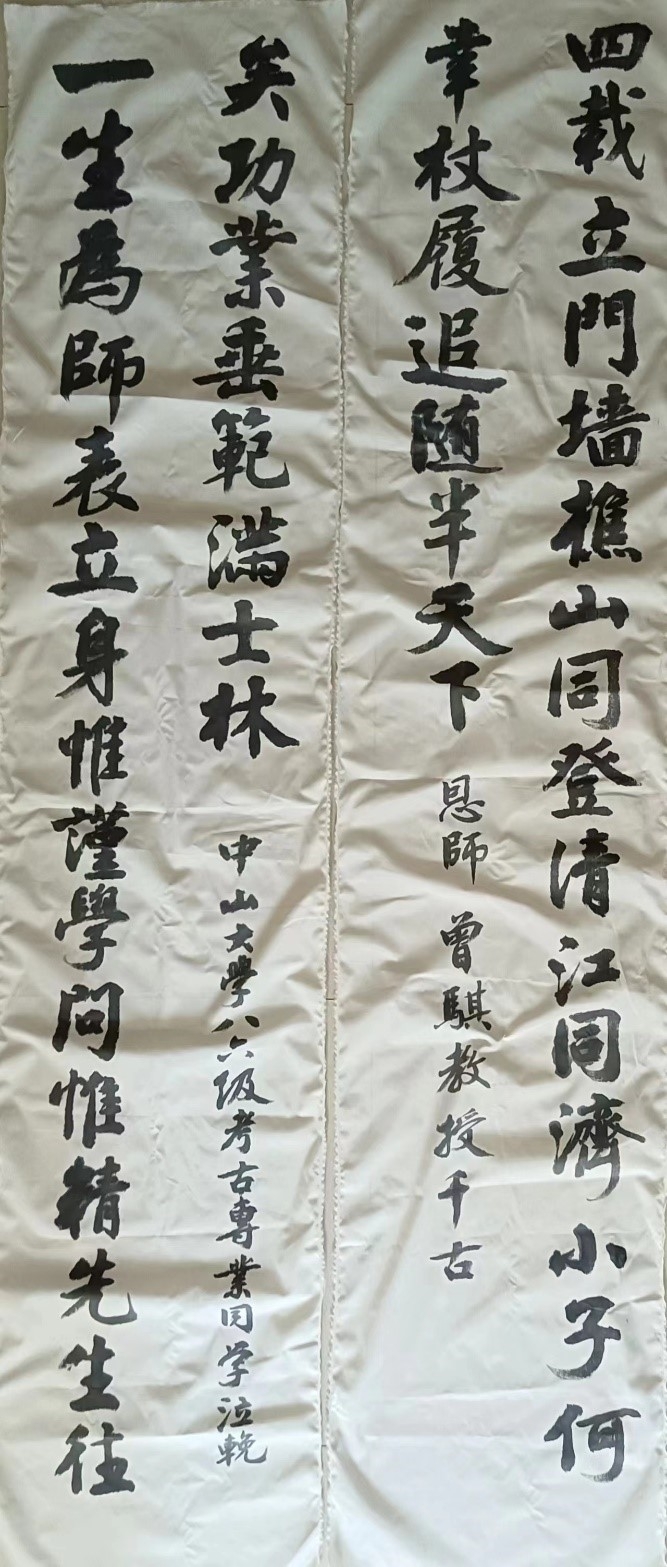 四載立門墙樵山同登清江同濟小子何
幸杖履追随半天下
恩師 曾騏教授千古
一生為師表立身惟謹學問惟精先生往
矣功業垂範滿士林
中山大學八六级考古專業同学泣輓